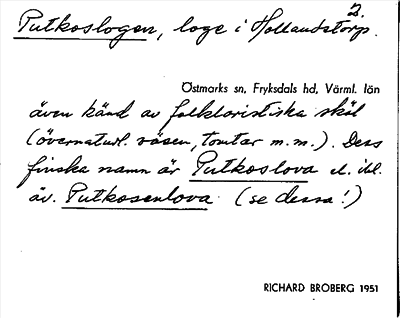 2.
Putkoslogen, loge i Hollandstorp.
Östmarks sn, Fryksdals hd, Värml. län
även känd av folkloristiska skäl
(övernaturl. väsen, tomtar m.m.). Dess
finska namn är Putkoslova el. ibl.
äv. Putkosenlova (se dessa!)
RICHARD BROBERG 1951